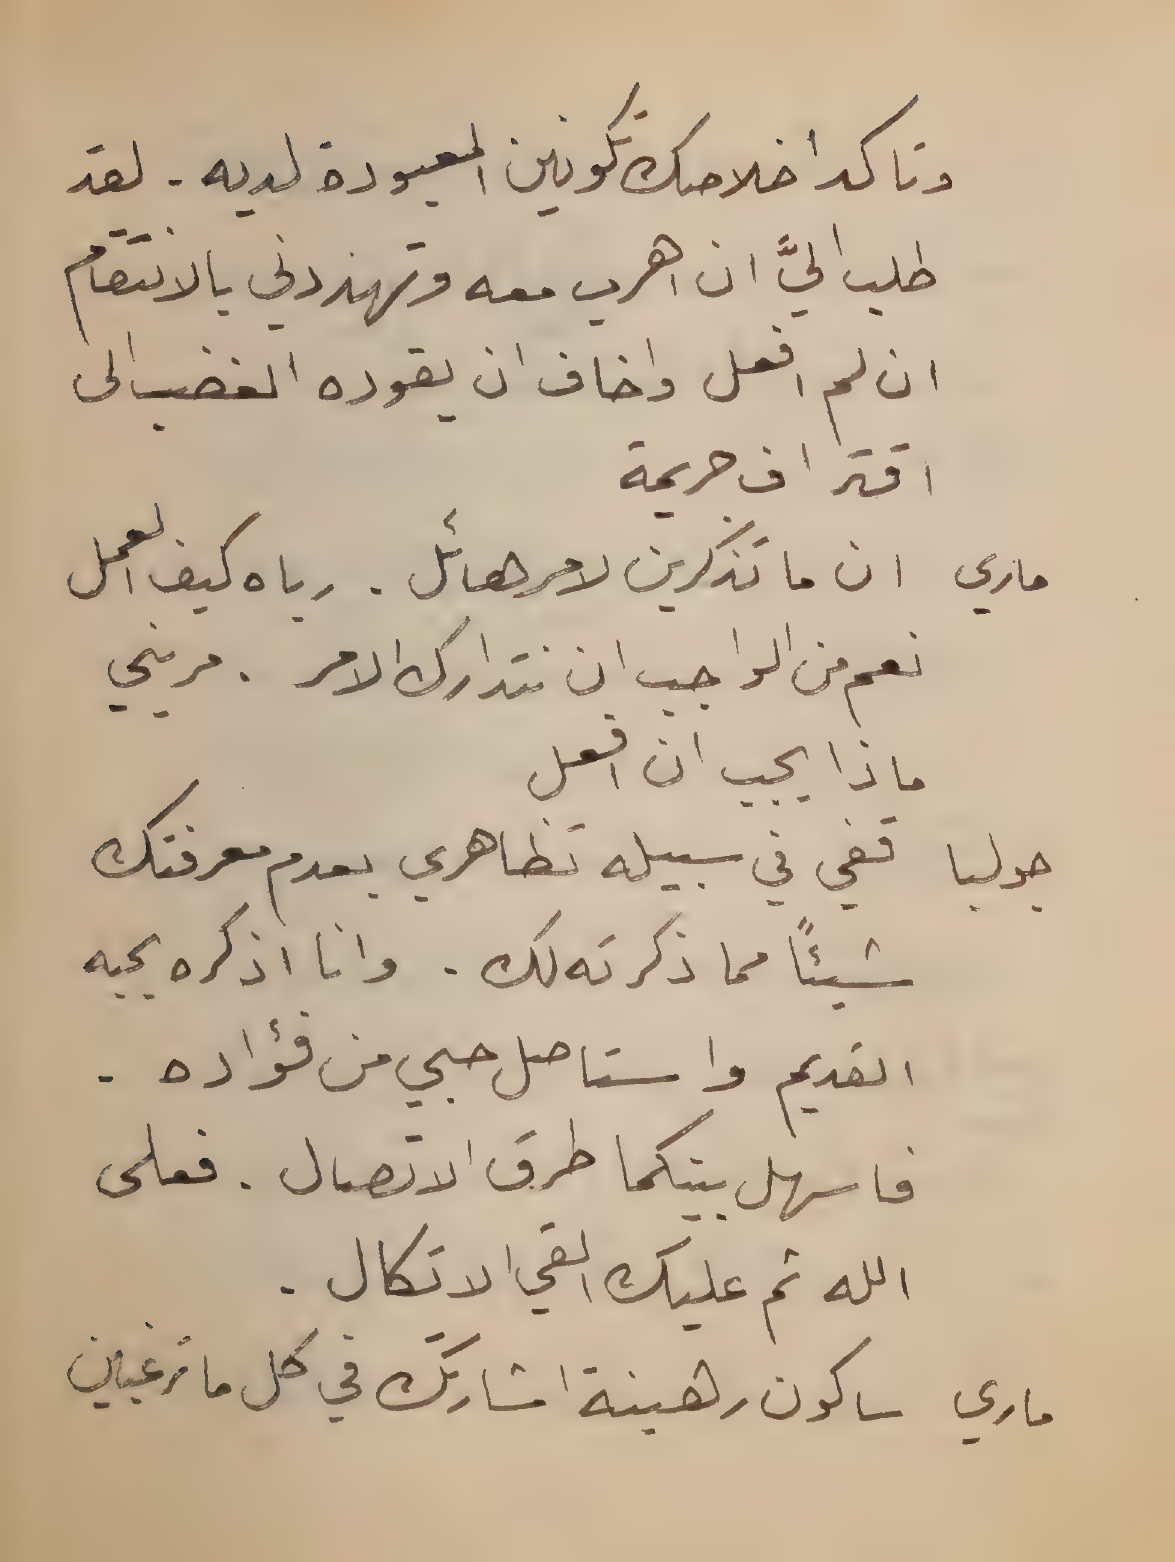 وتاكد اخلاصك تكونين المعبودة لديه . لقد
طلب اليَّ ان اهرب معه وتهددني بالانتقام
ان لم افعل واخاف ان يقوده الغضب الى
اقتراف جريمة
ماري ان ما تذكرين لامر هائل . رباه كيف العمل
نعم من الواجب ان نتدارك الامر . مريني
ماذا يجب ان افعل
جوليا قفي في سبيله تظاهري بعدم معرفتك
شيئًا مما ذكرته لك . وانا اذكره بحبه
القديم واستاصل حبي من فؤاده .
فاسهل بينكما طرق الاتصال . فعلى
الله ثم عليك القي الاتكال .
ماري ساكون رهينة اشارتك في كل ما ترغبين